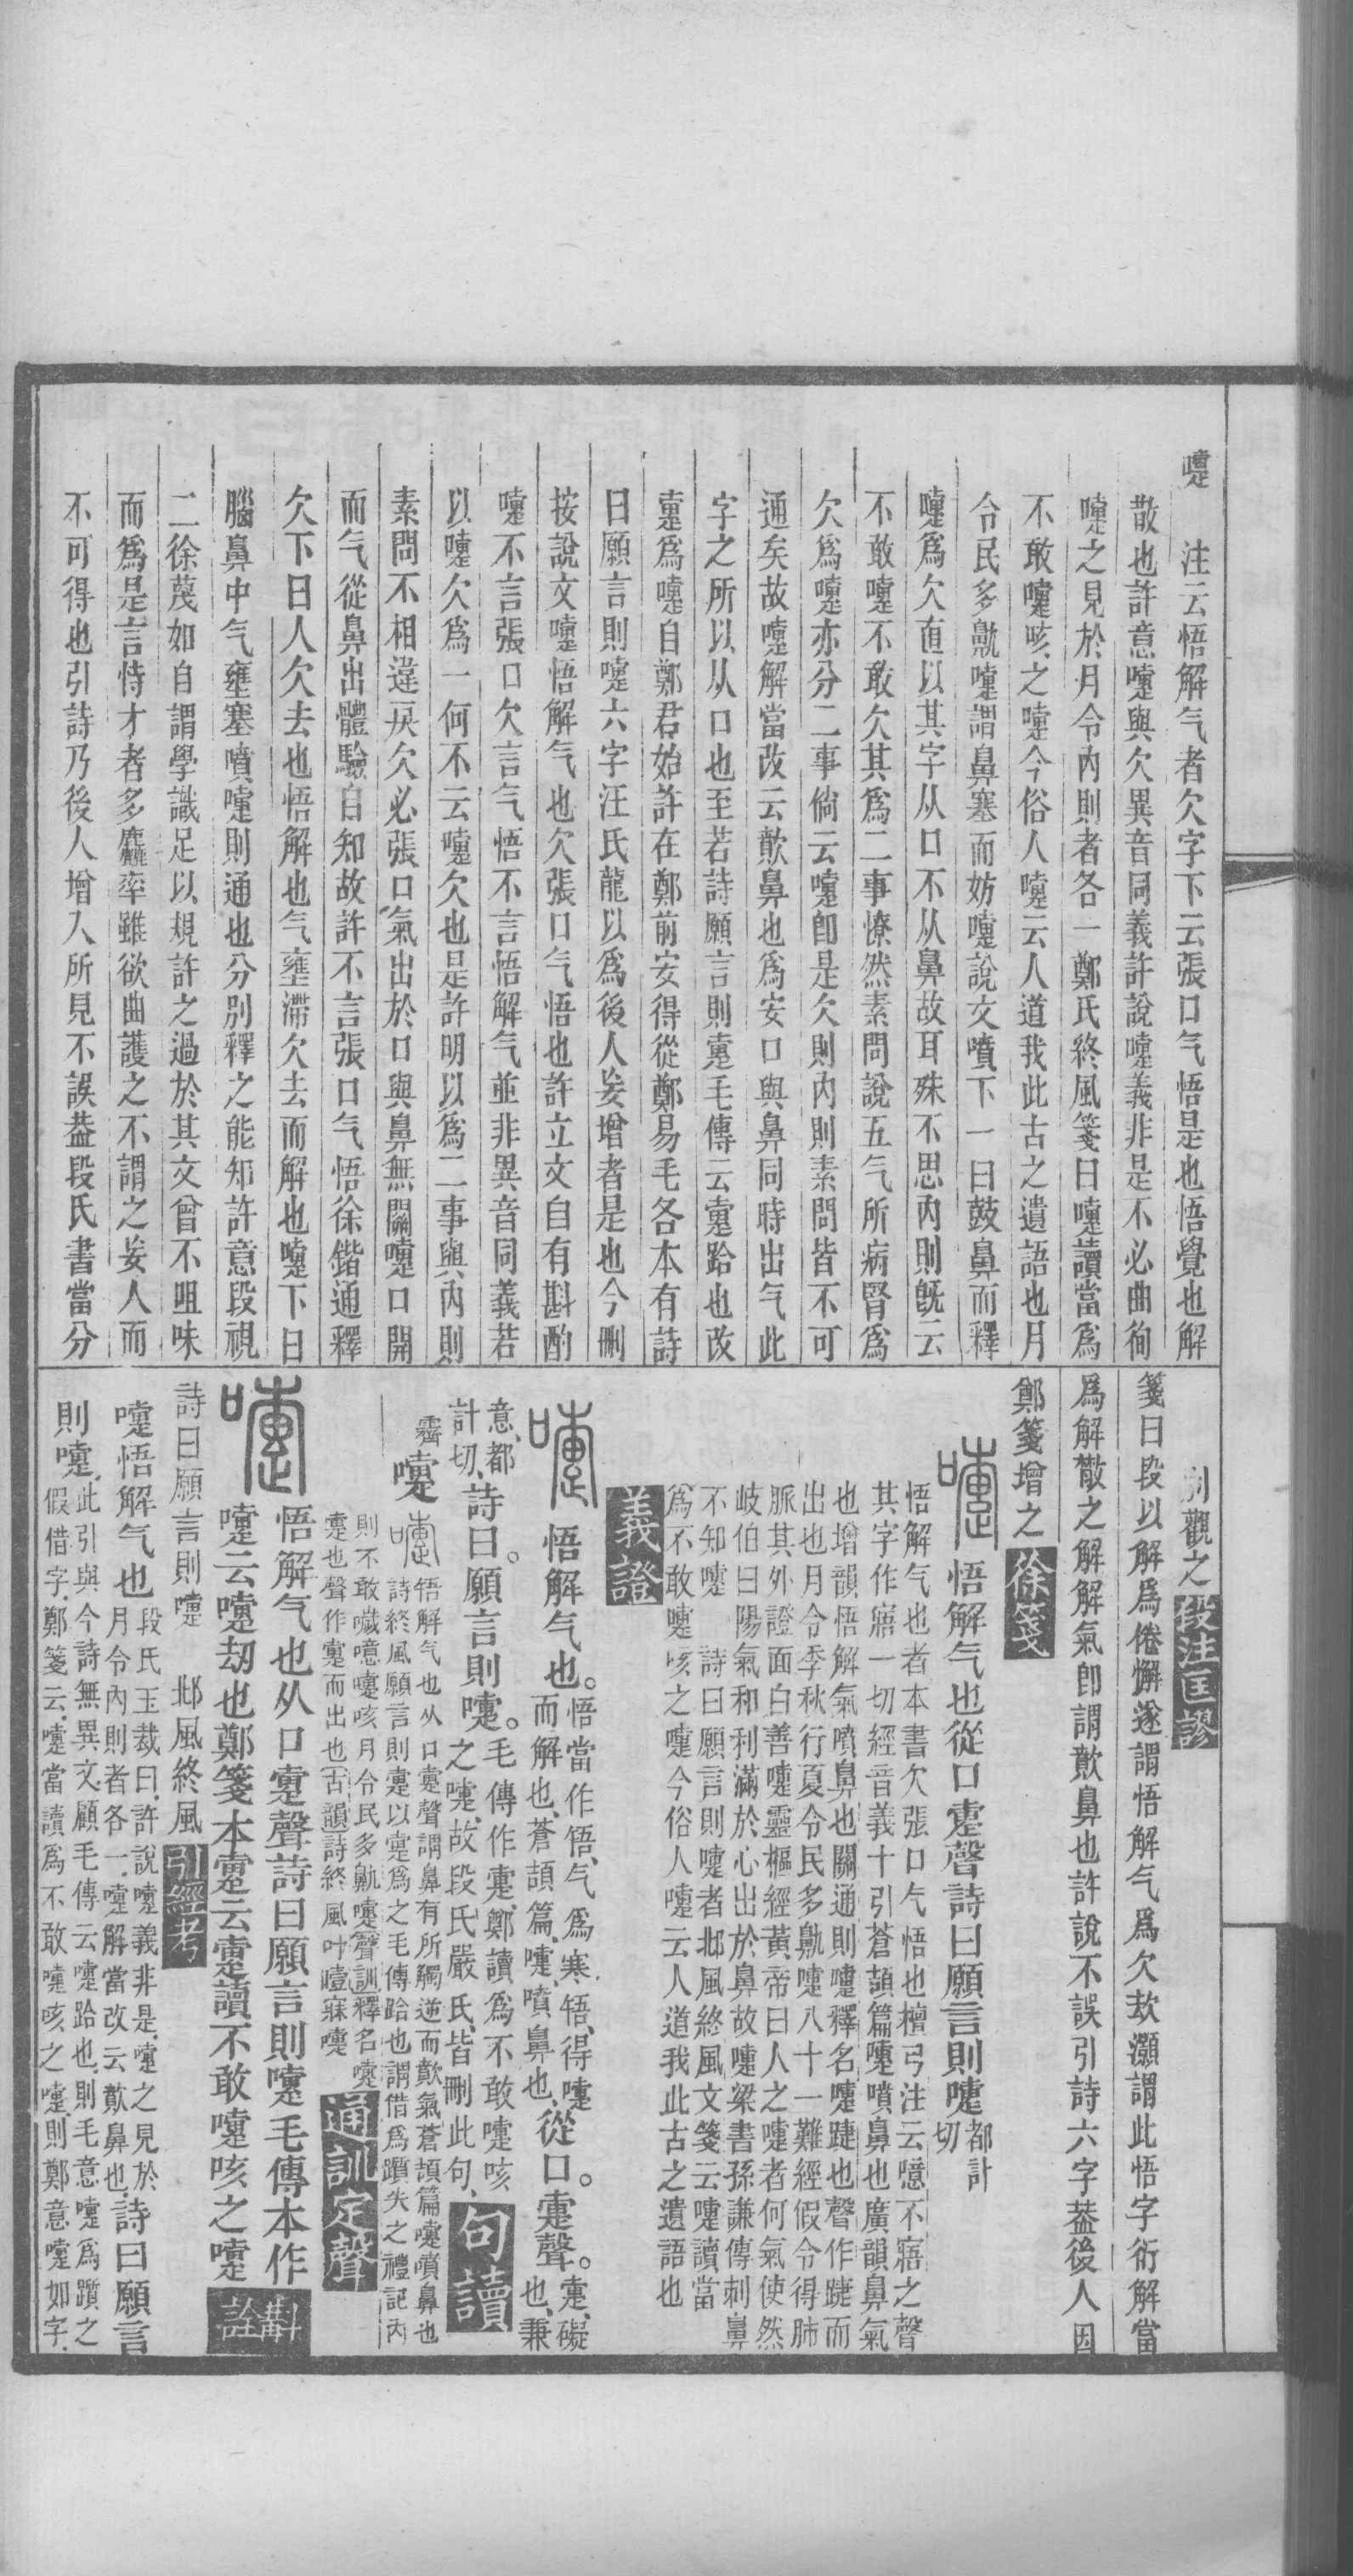 嚏　注云悟解气者欠字下云張口气悟是也悟覺也解
散也許意嚏與欠異音同義許說嚏義非是不必曲徇
嚏之見於月令內則者各一鄭氏終風箋曰嚏讀當爲
不敢嚏咳之嚏今俗人嚏云人道我此古之遺語也月
令民多鼽嚏謂鼻塞而妨嚏說文噴下一曰鼓鼻而釋
嚏爲欠直以其字从口不从鼻故耳殊不思內則旣云
不敢嚏不敢欠其爲二事憭然素問說五气所病腎爲
欠爲嚏亦分二事倘云嚏卽是欠則內則素問皆不可
通矣故嚏解當改云歕鼻也爲安口與鼻同時出气此
字之所以从口也至若詩願言則疌毛傳云疐跲也改
疐爲嚏自鄭君始許在鄭前安得從鄭易毛各本有詩
曰願言則嚏六字汪氏龍以爲後人妄增者是也今刪
按說文嚏悟解气也欠張口气悟也許立文自有斟酌
嚏不言張口欠言气悟不言悟解气並非異音同義若
以嚏欠爲一何不云嚏欠也是許明以爲二事與內則
素問不相違戾欠必張口氣出於口與鼻無關嚏口開
而气從鼻出體驗自知故許不言張口气悟徐鍇通釋
欠下曰人欠去也悟解也气壅滯欠去而解也嚏下曰
腦鼻中气壅塞噴嚏則通也分別釋之能知許意段視
二徐蔑如自謂學識足以規許之過於其文曾不咀味
而爲是言恃才者多麤率雖欲曲護之不謂之妄人而
不可得也引詩乃後人增入所見不誤葢段氏書當分
別觀之段注匡謬
箋曰段以解爲倦懈遂謂悟解气爲欠欬灝謂此悟字衍解當
爲解散之解解氣卽謂歕鼻也許說不誤引詩六字葢後人因
鄭箋增之徐箋
嚏悟解气也從口疐聲詩曰願言則嚏都計切
悟解气也者本書欠張口气悟也檀弓注云噫不寤之聲
其字作寤一切經音義十引蒼頡篇嚏噴鼻也廣韻鼻氣
也增韻悟解氣噴鼻也關通則嚏釋名嚏踕也聲作踕而
出也月令季秋行夏令民多鼽嚏八十一難經假令得肺
脈其外證面白善嚏靈樞經黃帝曰人之嚏者何氣使然
岐伯曰陽氣和利滿於心出於鼻故嚏梁書孫謙傳刺鼻
不知嚏　詩曰願言則嚏者邶風終風文箋云嚏讀當
爲不敢嚏咳之嚏今俗人嚏云人道我此古之遺語也
義證
嚏悟解气也。悟當作啎、气爲寒啎、得嚏而解也、蒼頡篇、嚏、噴鼻也、從口。疐聲。疐、礙也、兼
意、都計切、詩曰。願言則嚏。毛傳作疐、鄭讀爲不敢嚏咳之嚏、故段氏嚴氏、皆刪此句、句讀
嚏悟解气也从口疐聲謂鼻有所觸逆而歕氣蒼頡篇嚏噴鼻也
詩終風願言則疐以疐爲之毛傳跲也謂借爲躓失之禮記內
則不敢噦噫嚏咳月令民多鼽嚏聲訓釋名嚏
疐也聲作疐而出也古韻詩終風叶曀寐嚏通訓定聲
嚏悟解气也从口疐聲詩曰願言則嚏毛傳本作
嚏云嚏劫也鄭箋本疐云疐讀不敢嚏咳之嚏斠詮
詩曰願言則嚏　邶風終風引經考
嚏悟解气也段氏玉裁曰、許說嚏義非是、嚏之見於月令內則者各一、嚏解當改云歕鼻也、詩曰願言
則嚏、此引與今詩無異文、顧毛傳云嚏跲也、則毛意嚏爲躓之假借字、鄭箋云、嚏當讀爲不敢嚏咳之嚏、則鄭意嚏如字、